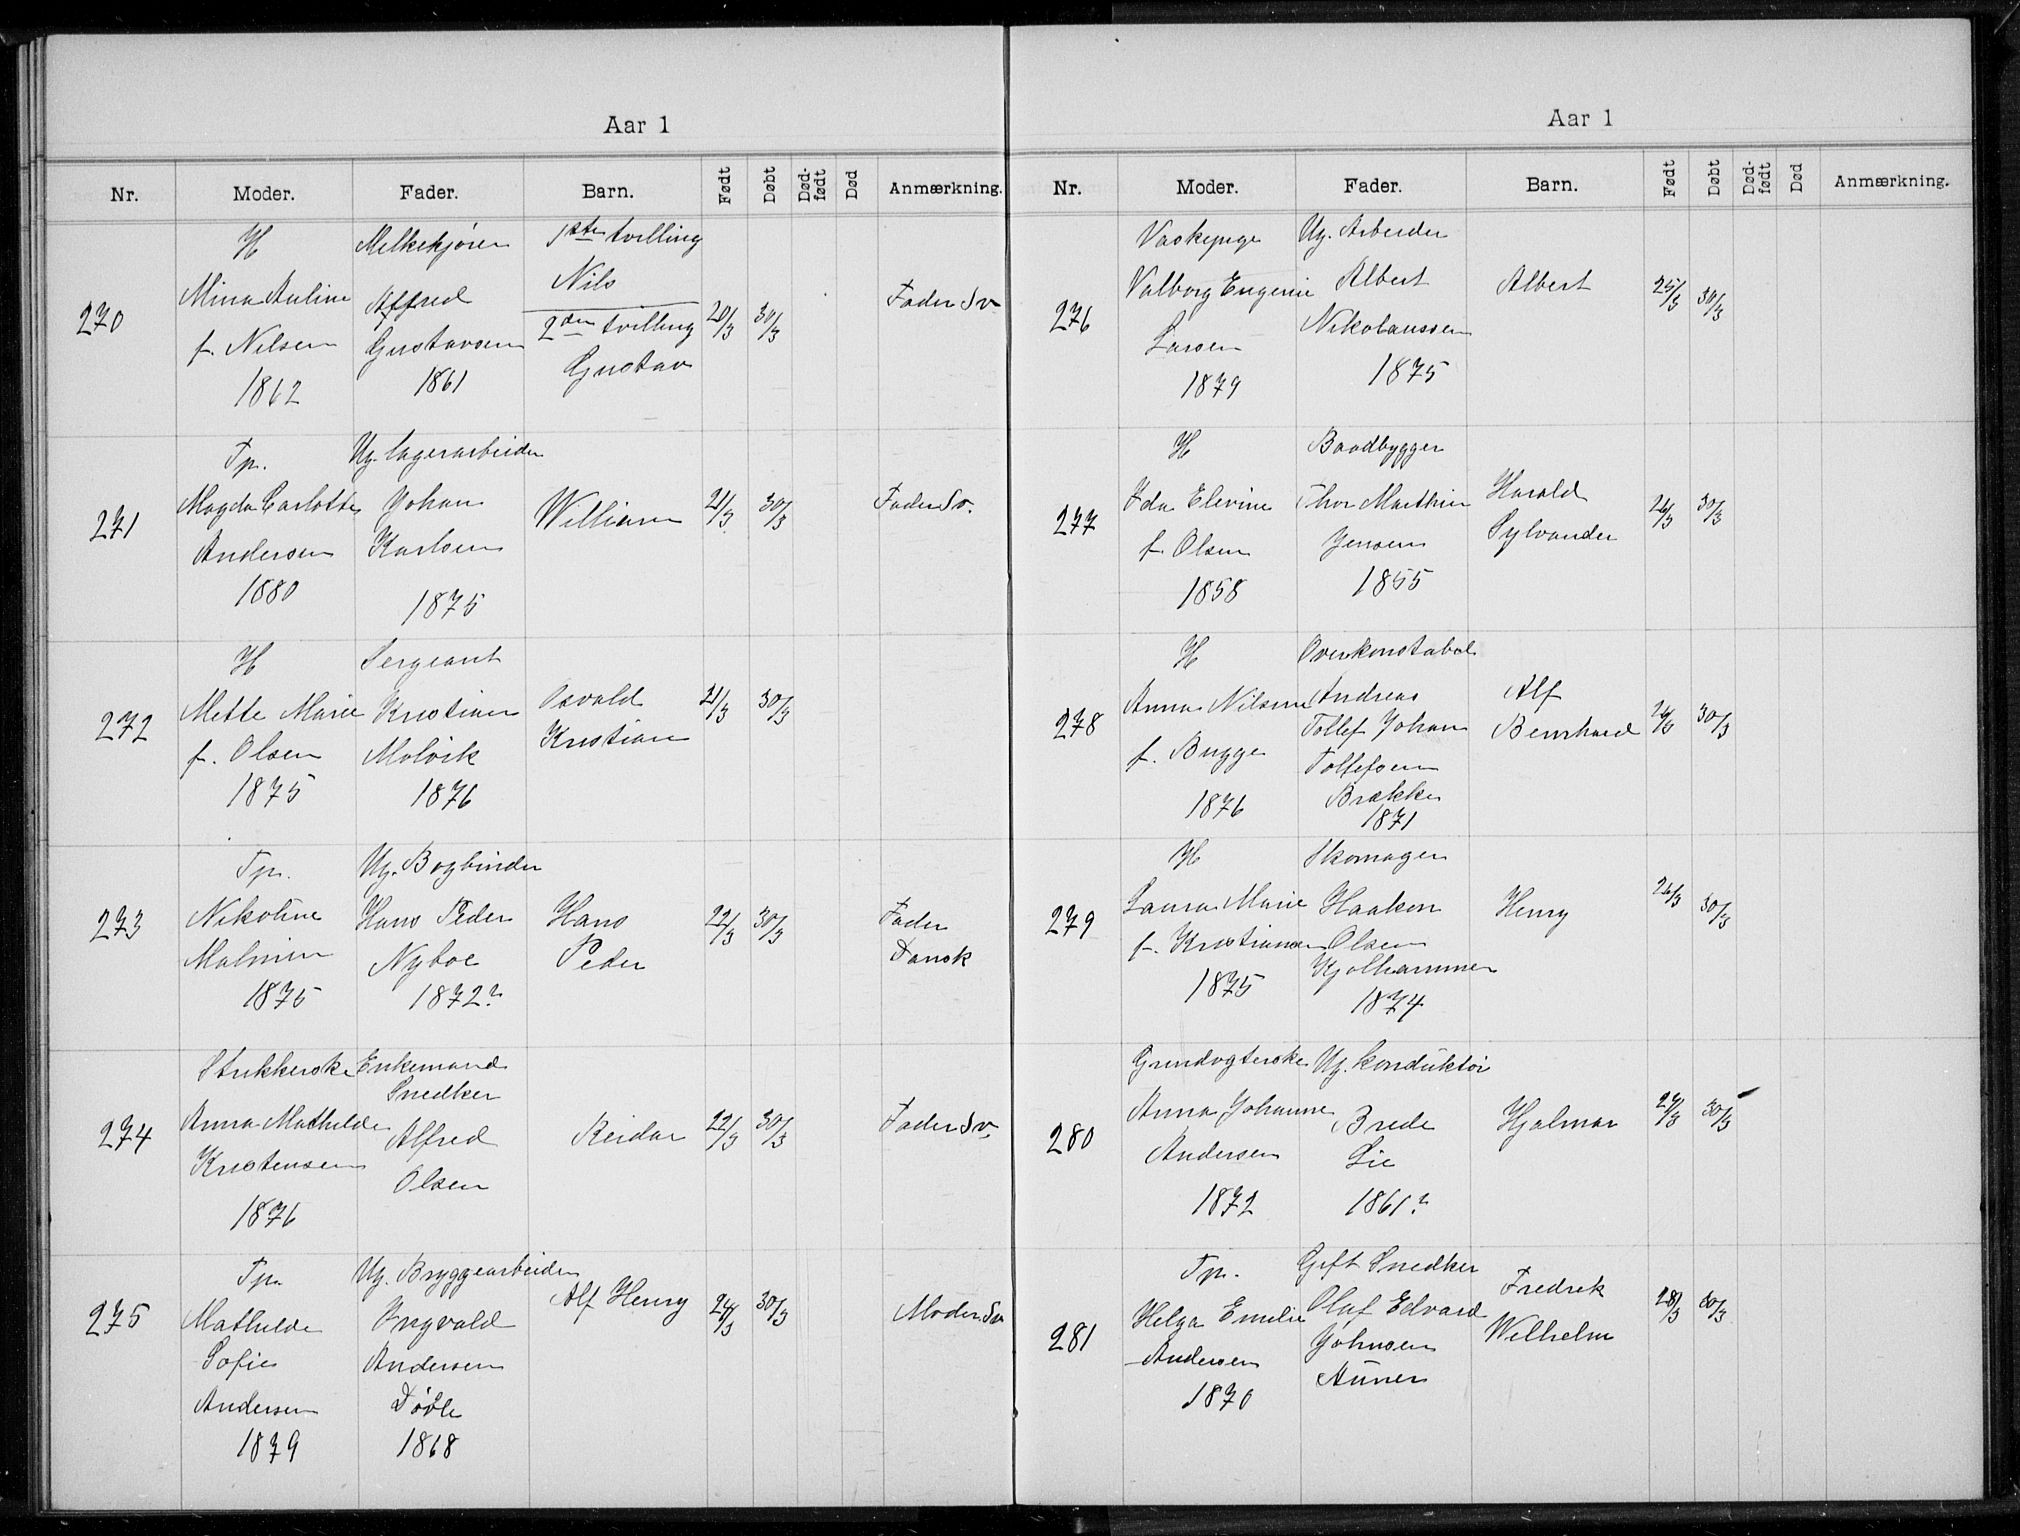 Aar 1
Nr. Moder. Fader. Barn. Født Døbt Død-født Død Anmærkning.
270
H
Mina Auline
f. Nilsen
1862
Melkekjører
Alfred
Gustavsen
1861
1ste tvilling
Nils
2den tvilling
Gustav
20/3 30/3
Fader Sv.
271
Tp.
Magda Carlotte
Andersen
1880
Ug. lagerarbeider
Johan
Karlsen
1875
William
21/3 30/3
Fader Sv.
272
H
Mette Marie
f. Olsen
1875
Sergeant
Kristian
Molvik
1876
Osvald
Kristian
21/3 30/3
273
Tp.
Nikoline
Malmin
1875
Ug. Bogbinder
Hans Peder
Nyboe
1872?
Hans
Peder
22/3 30/3
Fader
Dansk
274
Strikkerske
Anna Mathilde
Kristensen
1876
Enkemand
Snedker
Alfred
Olsen
Reidar
22/3 30/3
Fader Sv.
275
Tp.
Mathilde
Sofie
Andersen
1879
Ug. Bryggearbeider
Ingvald
Andersen
Døvle
1868
Alf Henry
24/3 30/3
Moder Sv
Aar 1
Nr. Moder. Fader. Barn. Født Døbt Død-født Død Anmærkning.
276
Vaskepige
Valborg Eugenie
Larsen
1879
Ug. Arbeider
Albert
Nikolaussen
1875
Albert
25/3 30/3
277
H
Ida Elevine
f. Olsen
1858
Baadbygger
Thor Marthin
Jensen
1855
Harald
Sylvander
26/3 30/3
278
H
Anna Nilsine
f. Bugge
1876
Overkonstabel
Andreas
Tollef Johan
Tollefsen
Brække
1871
Alf
Bernhard
26/3 30/3
279
H
Laura Marie
f. Kristiansen
1875
Skomager
Haakon
Olsen
Kjølhammer
1874
Henry
26/3 30/3
280
Grindvogterske
Anna Johanne
Andersen
1872
Ug. konduktør
Brede
Lie
1861?
Hjalmar
27/3 30/3
281
Tp.
Helga Emilie
Andersen
1870
Gift Snedker
Oluf Edvard
Johnsen
Auner
Fredrik
Wilhelm
28/3 30/3